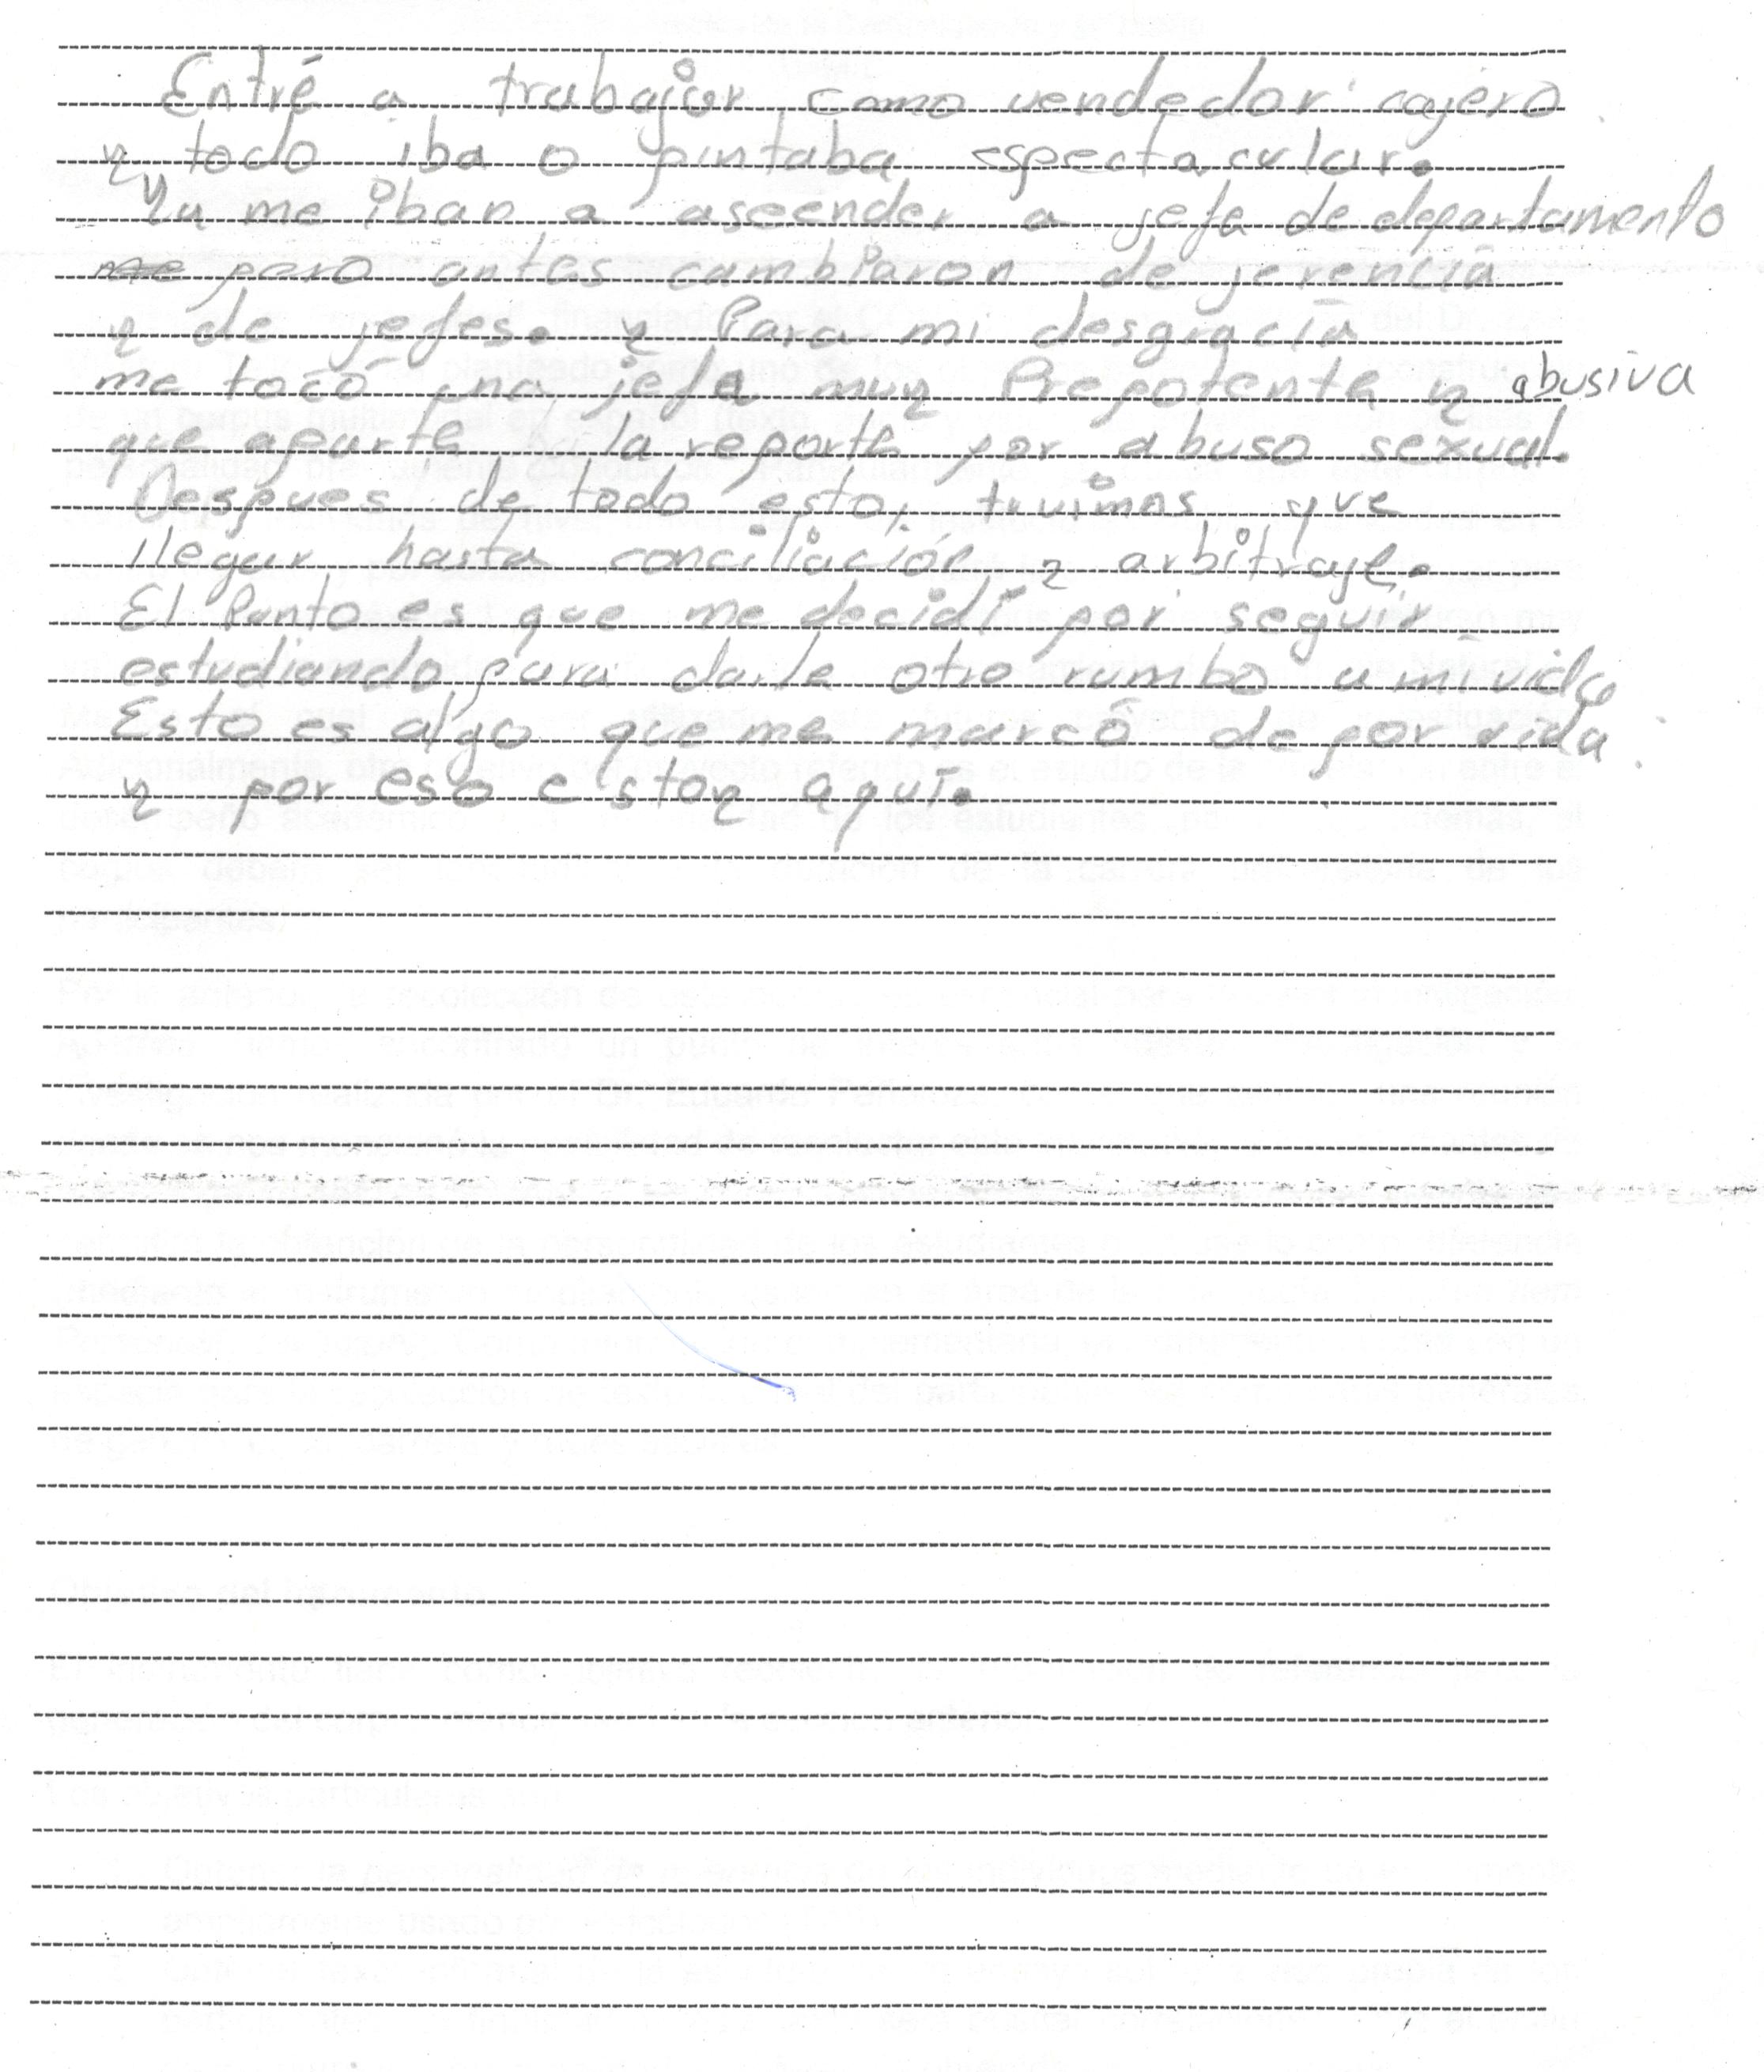 Entré a trabajar como vendedor cajero
y todo iba o pintaba espectacular.
Ya me iban a ascender a jefe de departamento
me pero antes cambiaron de jerencia
y de jefes. y Para mi desgracia
me tocó una jefa muy Prepotente y abusiva
que aparte la reporte por abuso sexual.
Despues de todo esto, tuvimos que
llegar hasta conciliación y arbitraje.
El Punto es que me decidí por seguir
estudiando para darle otro rumbo a mi vida
Esto es algo que me marcó de por vida
y por eso estoy aquí.